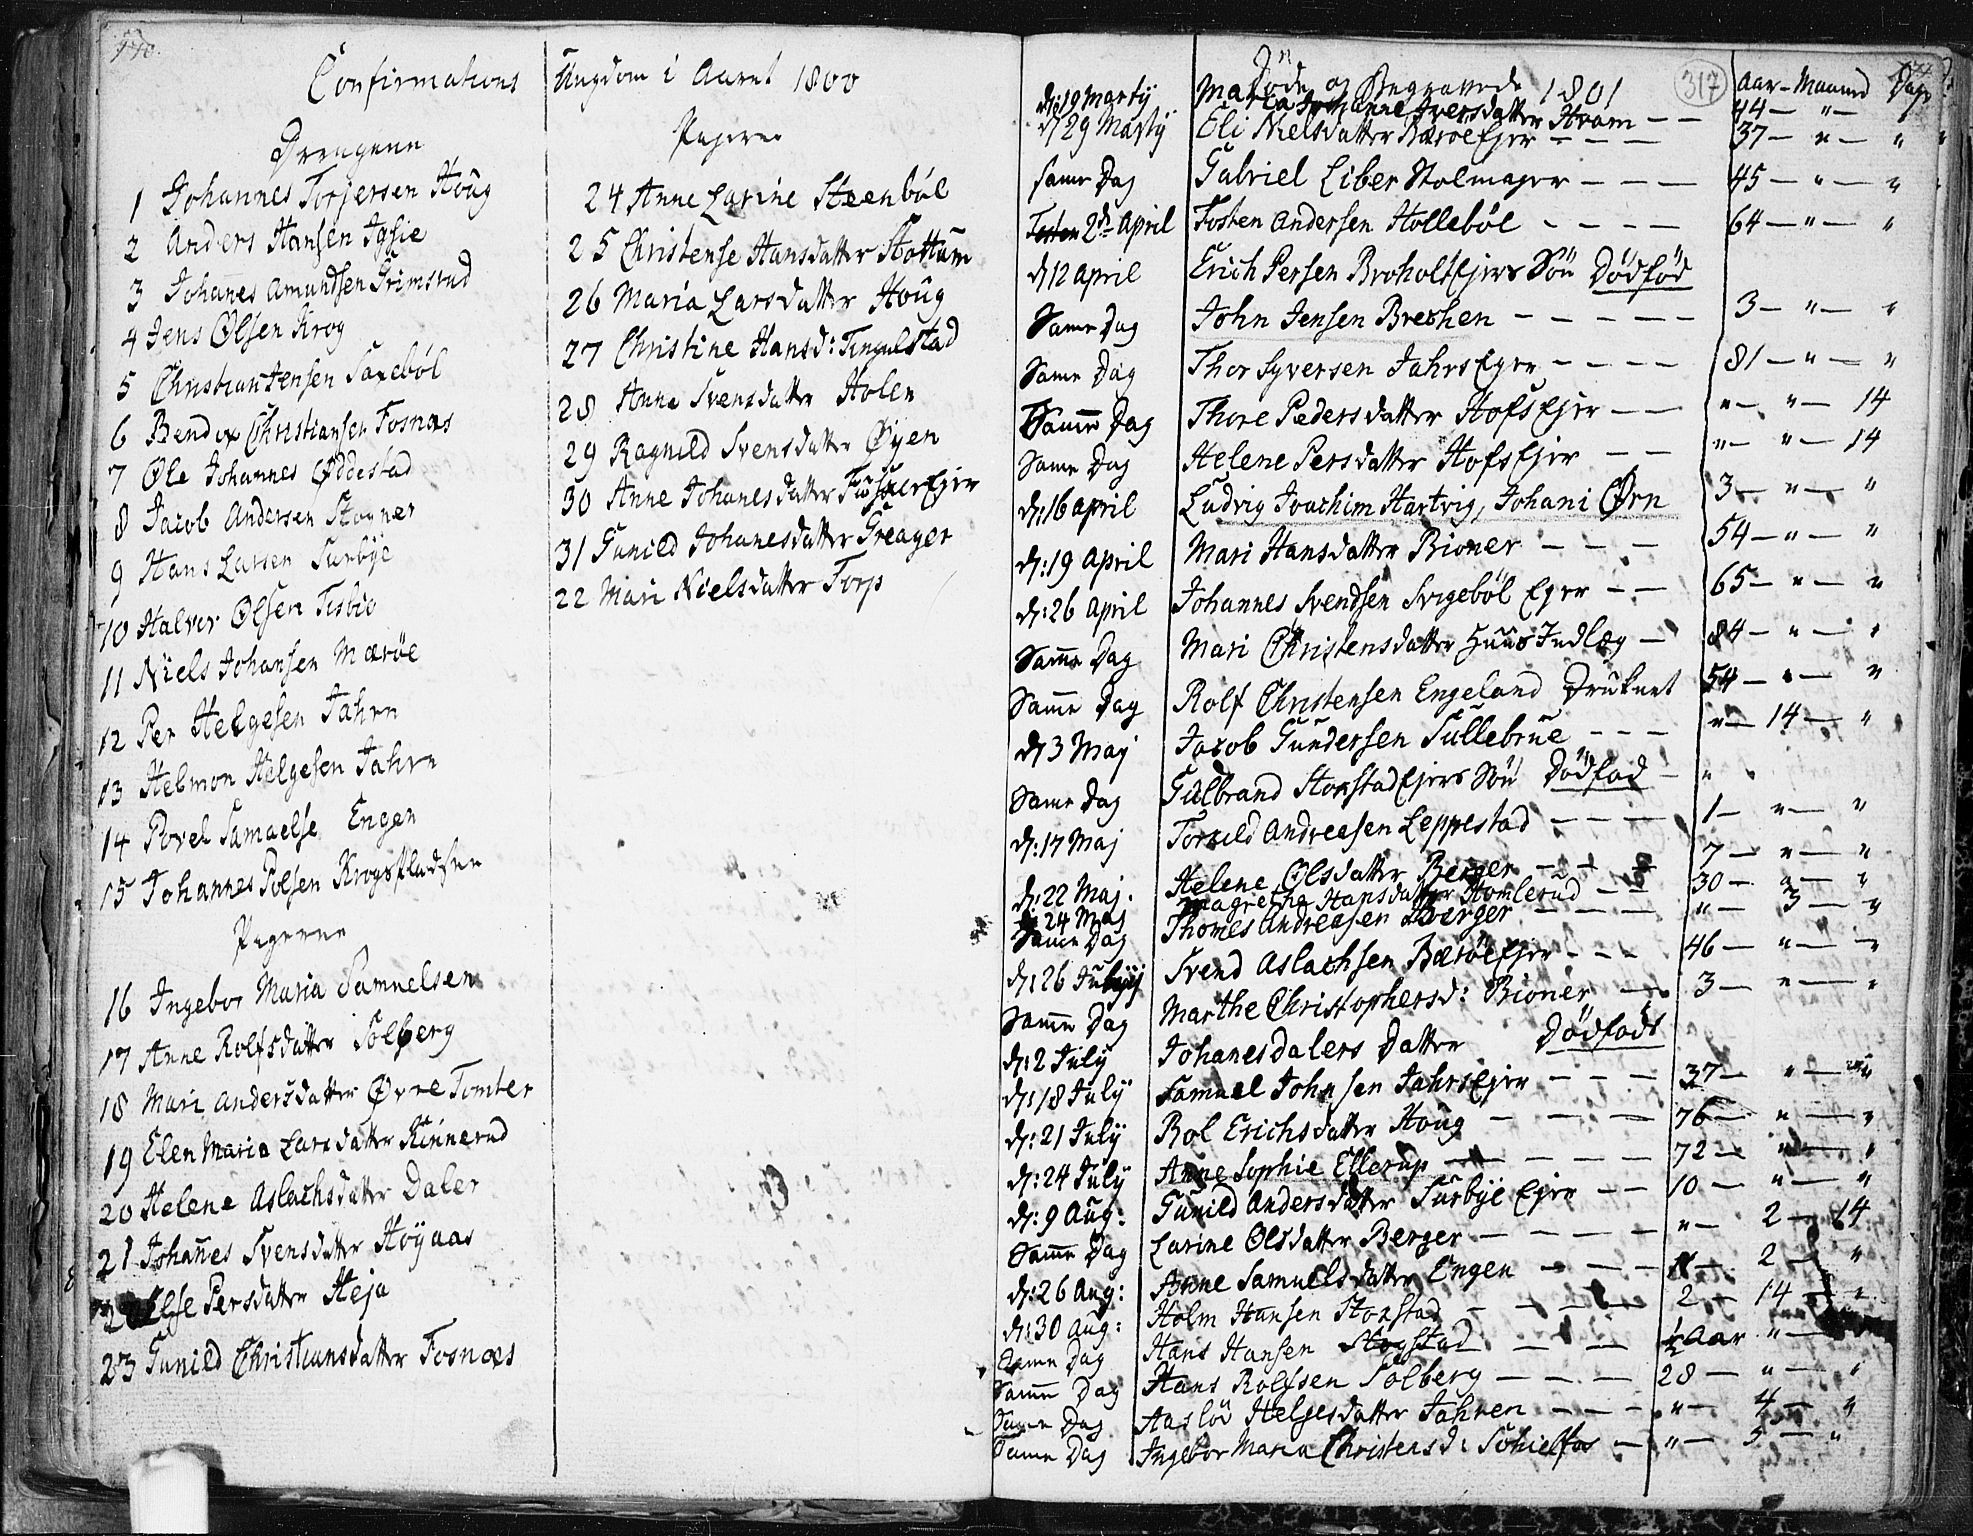 Confirmations Ungdom i Aaret 1800
Drengene
1 Johannes Torjersen Houg
2 Anders Hansen Igsie
3 Johanes Amundsen Grimsrud
4 Jens Olsen Krog
5 Christian Jensen Saxebøl
6 Bendix Christiansen Fosnæs
7 Ole Johannes Oddestad
8 Jacob Andersen Stogner
9 Hans Larsen Surbye
10 Halvor Olsen
11 Niels Johansen Mærøe
12 Per Helgesen Jahrn
13 Helmon Helgesen Jahrn
14 Povel Samuelse Engen
15 Johannes Polsen Krogspladsen
Pigerne
16 Ingebor Maria Samuelsen
17 Anne Rolfsdatter Solberg
18 Mari Andersdatter Øvre Tomter
19 Elen Maria Larsdatter Kinnerud
20 Helene Aslachsdatter Daler
21 Johannes Svensdatter Höyaas
22 Else Persdatter Heja
23 Gunild Christiansdatter Fosnæs
Pigerne
24 Anne Larine Steenbøl
25 Christense Hansdatter Stottum
26 Maria Larsdatter Houg
27 Christine Hansd: Tingulstad
28 Anne Svensdatter Holen
29 Ragnild Svensdatter Øyen
30 Anne Johanesdatter
31 Gunild Johanesdatter Greager
22 Mari Nielsdatter Torp
317
Døde og Begravede 1801 Aar - Maaned Dage
d: 19 Marty Maria Johanne Iversdatter Hvam - - 44 - " - "
d 29 Marty Eli Nielsdatter Bærøe Ejer - - - 37 - " - "
same Dag Gabriel Liber Stolmager - - - 45 - " - "
2d April Tosten Andersen Hollebøl - - - - 64 - " - "
d 12 April Erich Persen Broholt Ejers Sön Dödföd
Same Dag John Jensen Brechen - - - - - 3 - " - "
Same Dag Thor Syversen Jahrs Eyer - - - - 81 - " - "
Samme Dag Thore Pedersdatter Hofs Ejer - - " - " - 14
Same Dag Helene Persdatter Hofs Ejer - - " - " - 14
d: 16 April Ludvig Joachim Hartvig, Johani Ørn 3 - " - "
d: 19 April Mari Hansdatter Bioner - - - 54 - " - "
d: 26 April Johannes Svendsen Svigebøl Eyer - - 65 - " - "
Samme Dag Mari Christensdatter Huus Indlæg - 84 - " - "
Samme Dag Rolf Christensen Engeland Druknet 54 - " - "
d 3 May Jacob Gundersen Sullebrue - - - " - 14 - "
Same Dag Gulbrand Storstad Ejers Sön Dödföd - "
d: 17 Maj Torkild Andreasen Leppestad - - - - 1 - " - "
d: 22 Maj. Helene Olsdatter Berger - - 7 - " - "
d 24 Maj Magrethe Hansdatter Homlerud - - 30 - " - "
Same Dag Thomes Andreasen Berger - - - - " - 3 - "
d: 26 Svend Aslachsen Bærøe Ejer - - - 46 - " - "
Samme Dag Marthe Christophersd: Bioner - 3 - " - "
d: 2 July Johanes Dalers Datter Dödfödt
d: 18 July Samuel Johnsen Jahrs Ejer - - - 37 - " - "
d: 21 July Rol Erichsdatter Houg - - - - 76 - " - "
d: 24 July Anne Sophie Ellerup - - - - 72 - " - "
d: 9 Aug: Gunild Andersdatter Surbye Ejer - - 10 - " - "
Samme Dag Larine Olsdatter Berger - - - - " - 2 - 14
d: 26 Aug: Anne Samuelsdatter Engen - - - - 2 - "
d: 30 Aug: Holm Hansen Storstad - - - - 2 - 14 - "
Same Dag Hans Hansen Stogstad - - - 1/2 Aar " -
Samme Dag Hans Rolfsen Solberg - - - - 28 - " - "
Same Dag Aaslöv Helgesdatter Jahren - - - - " - 4 - "
Same Dag Ingebor Maria Christensd: - " - 5 - "